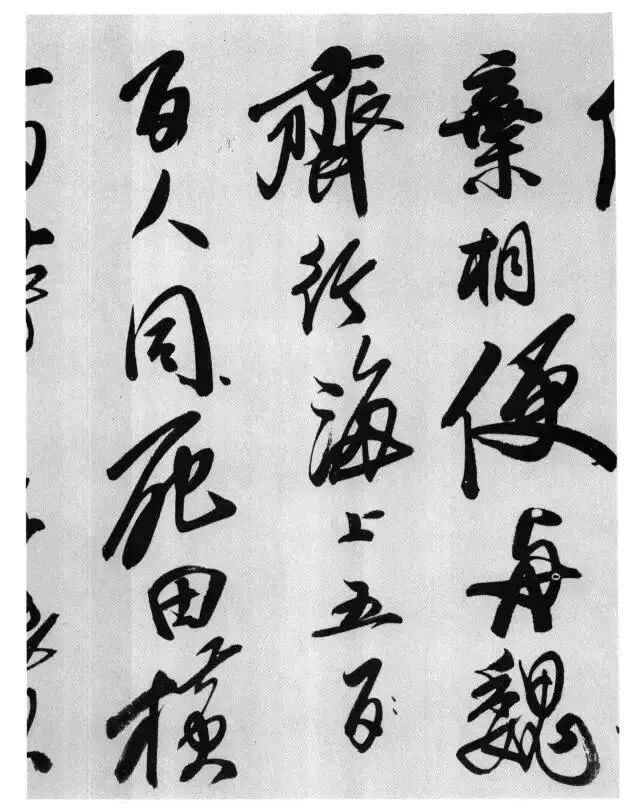 棄相便與魏
齊行海上五百
百人同死田横